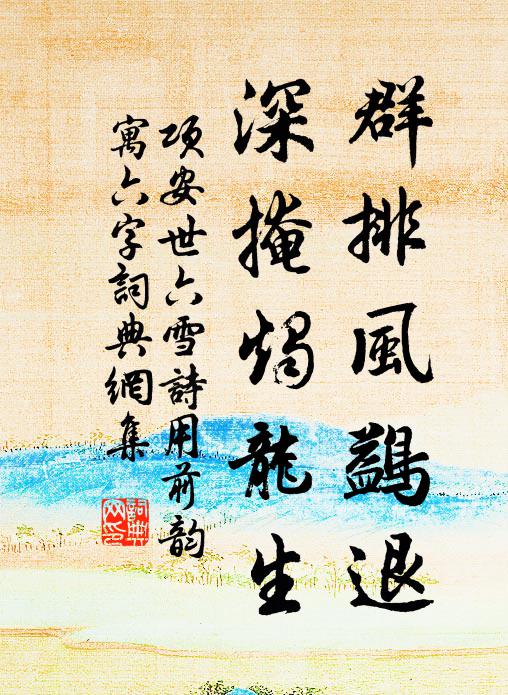 群排風鷁退
深掩燭龍生
項安世六雪詩用前韵
寓六字詞典網集
詞典网印